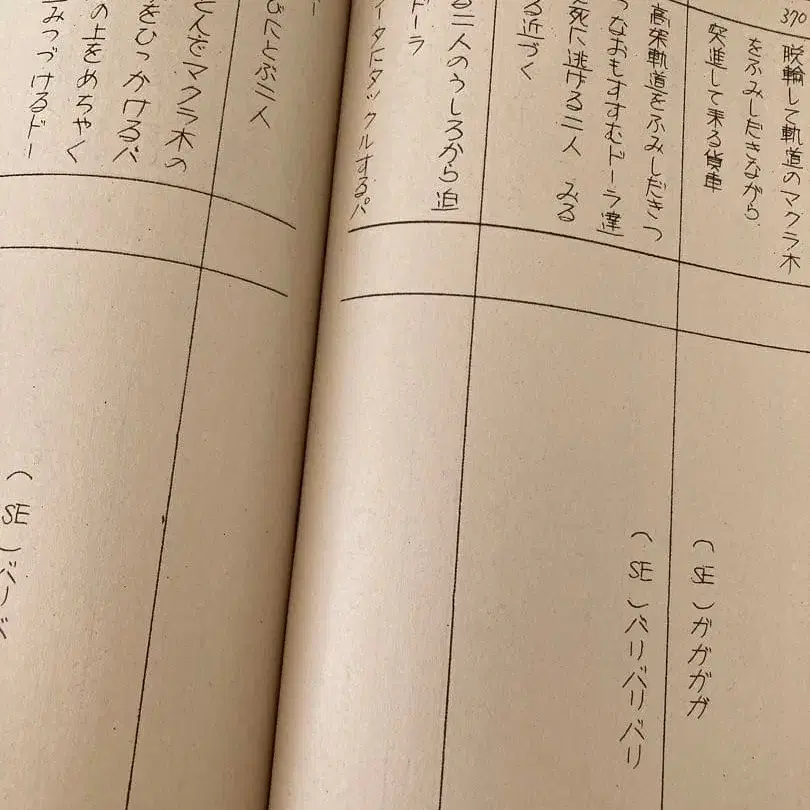 370
脱輪して軌道のマクラ木
をふみしだきながら
突進して来る貨車
(SE)ガガガガ
高架軌道をふみしだきつ
つなおもすすむドーラ達
死に逃げる二人 みる
る近づく
(SE)バリバリバリ
る二人のうしろから迫
ドーラ
ータにタックルするパ
びにとぶ二人
とんをマクラ木の
をひっかけるパ
の上をめちゃく
みつづけるドー
(SE)バリバ